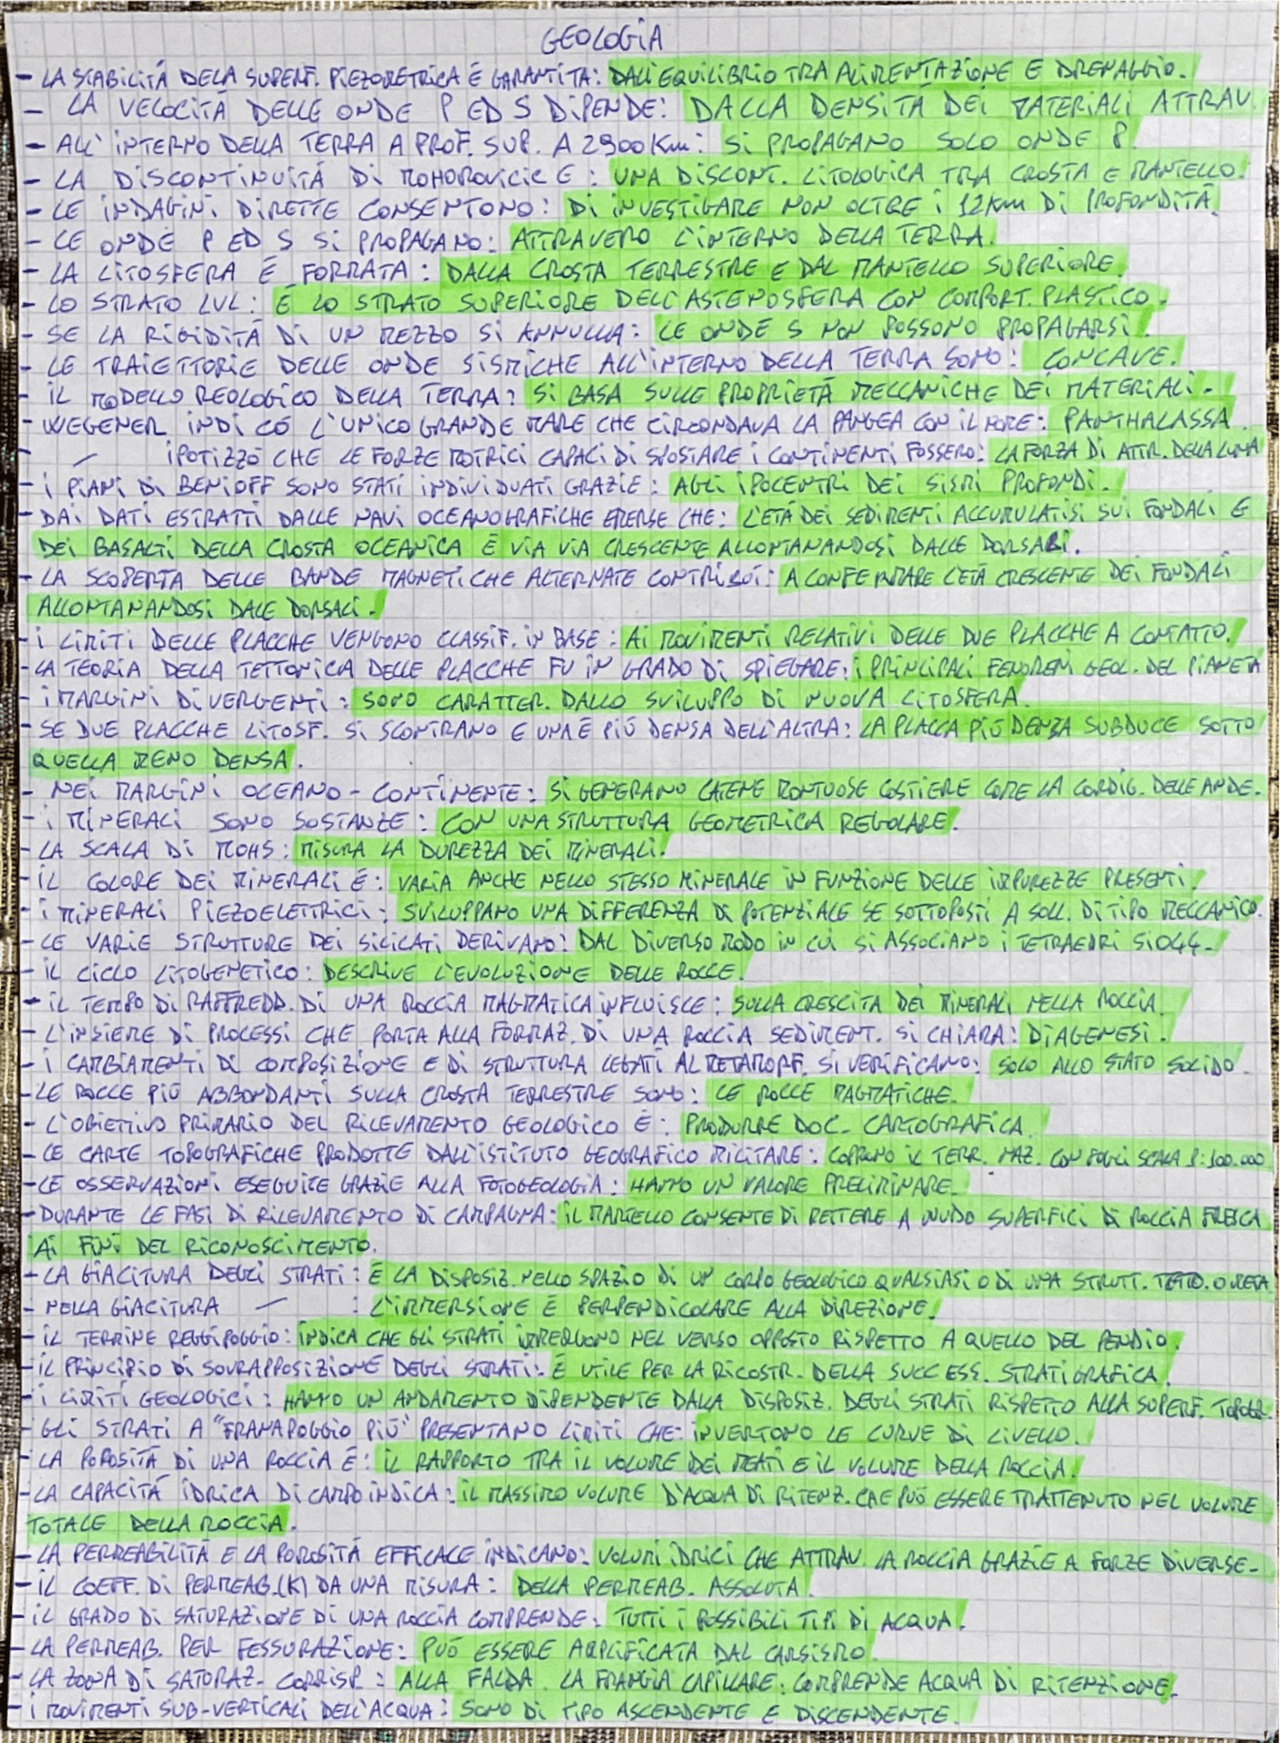 GEOLOGIA
- LA STABILITÁ DELA SUPERF. PIEZOMETRICA É GARANTITA: DALL'EQUILIBRIO TRA ALIMENTAZIONE E DRENAGGIO.
- LA VELOCITÁ DELLE ONDE P ED S DIPENDE: DALLA DENSITÁ DEI MATERIALI ATTRAV.
- ALL'INTERNO DELLA TERRA A PROF. SUP. A 2900 Km: SI PROPAGANO SOLO ONDE P.
- LA DISCONTINUITÁ DI MOHOROVICIC E: UNA DISCONT. LITOLOGICA TRA CROSTA E MANTELLO.
- LE INDAGINI DIRETTE CONSENTONO: DI INVESTIGARE NON OLTRE I 12Km DI PROFONDITÁ.
- LE ONDE P ED S SI PROPAGANO: ATTRAVERO L'INTERNO DELLA TERRA.
- LA LITOSFERA É FORMATA: DALLA CROSTA TERRESTRE E DAL MANTELLO SUPERIORE.
- LO STRATO LVL: É LO STRATO SUPERIORE DELL'ASTENOSFERA CON COMPORT. PLASTICO.
- SE LA RIGIDITÁ DI UN MEZZO SI ANNULLA: LE ONDE S NON POSSONO PROPAGARSI.
- LE TRAIETTORIE DELLE ONDE SISMICHE ALL'INTERNO DELLA TERRA SONO: CONCAVE.
- IL MODELLO REOLOGICO DELLA TERRA: SI BASA SULLE PROPRIETÁ MECCANICHE DEI MATERIALI.
- WEGENER INDICÓ L'UNICO GRANDE MARE CHE CIRCONDAVA LA PANGEA CON IL NOME: PANTHALASSA.
- IPOTIZZÓ CHE LE FORZE MOTRICI CAPACI DI SPOSTARE I CONTINENTI FOSSERO: LA FORZA DI ATTR. DELLA LUNA
- I PIANI DI BENIOFF SONO STATI INDIVIDUATI GRAZIE: AGLI IPOCENTRI DEI SISMI PROFONDI.
- DAI DATI ESTRATTI DALLE NAVI OCEANOGRAFICHE EMERSE CHE: L'ETÁ DEI SEDIMENTI ACCUMULATISI SUI FONDALI E
DEI BASALTI DELLA CROSTA OCEANICA É VIA VIA CRESCENTE ALLONTANANDOSI DALLE DORSALI.
- LA SCOPERTA DELLE BANDE MAGNETICHE ALTERNATE CONTRIBUÍ: A CONFERMARE L'ETÁ CRESCENTE DEI FONDALI
ALLONTANANDOSI DALE DORSALI.
- I LIMITI DELLE PLACCHE VENGONO CLASSIF. IN BASE: AI MOVIMENTI RELATIVI DELLE DUE PLACCHE A CONTATTO.
- LA TEORIA DELLA TETTONICA DELLE PLACCHE FU IN GRADO DI SPIEGARE: I PRINCIPALI FENOMENI GEOL. DEL PIANETA
- I MARGINI DIVERGENTI: SONO CARATTER. DALLO SVILUPPO DI NUOVA LITOSFERA.
- SE DUE PLACCHE LITOSF. SI SCONTRANO E UNA É PIÚ DENSA DELL'ALTRA: LA PLACCA PIÚ DENSA SUBDUCE SOTTO
QUELLA MENO DENSA.
- NEI MARGINI OCEANO - CONTINENTE: SI GENERANO CATENE MONTUOSE COSTIERE COME LA CORDIG. DELLE ANDE.
- I MINERALI SONO SOSTANZE: CON UNA STRUTTURA GEOMETRICA REGOLARE.
- LA SCALA DI MOHS: MISURA LA DUREZZA DEI MINERALI.
- IL COLORE DEI MINERALI É: VARIA ANCHE NELLO STESSO MINERALE IN FUNZIONE DELLE IMPUREZZE PRESENTI.
- I MINERALI PIEZOELETTRICI: SVILUPPANO UNA DIFFERENZA DI POTENZIALE SE SOTTOPOSTI A SOLL. DI TIPO MECCANICO.
- LE VARIE STRUTTURE DEI SILICATI DERIVANO: DAL DIVERSO MODO IN CUI SI ASSOCIANO I TETRAEDRI SIO44-
- IL CICLO LITOGENETICO: DESCRIVE L'EVOLUZIONE DELLE ROCCE.
- IL TEMPO DI RAFFREDD. DI UNA ROCCIA MAGMATICA INFLUISCE: SULLA CRESCITA DEI MINERALI NELLA ROCCIA.
- L'INSIEME DI PROCESSI CHE PORTA ALLA FORMAZ. DI UNA ROCCIA SEDIMENT. SI CHIAMA: DIAGENESI.
- I CAMBIAMENTI DI COMPOSIZIONE E DI STRUTTURA LEGATI AL METAMORF. SI VERIFICANO: SOLO ALLO STATO SOLIDO.
- LE ROCCE PIÚ ABBONDANTI SULLA CROSTA TERRESTRE SONO: LE ROCCE MAGMATICHE.
- L'OBIETTIVO PRIMARIO DEL RILEVAMENTO GEOLOGICO É: PRODURRE DOC. CARTOGRAFICA.
- LE CARTE TOPOGRAFICHE PRODOTTE DALL'ISTITUTO GEOGRAFICO MILITARE: COPRONO IL TERR. NAZ. CON FOGLI SCALA 1:100.000
- LE OSSERVAZIONI ESEGUITE GRAZIE ALLA FOTOGEOLOGIA: HANNO UN VALORE PRELIMINARE.
- DURANTE LE FASI DI RILEVAMENTO DI CAMPAGNA: IL MARTELLO CONSENTE DI METTERE A NUDO SUPERFICI DI ROCCIA FRESCA
AI FINI DEL RICONOSCIMENTO.
- LA GIACITURA DEGLI STRATI: É LA DISPOSIZ. NELLO SPAZIO DI UN CORPO GEOLOGICO QUALSIASI O DI UNA STRUTT. TETTO. O META
- NELLA GIACITURA - : L'IMMERSIONE É PERPENDICOLARE ALLA DIREZIONE.
- IL TERMINE REGGIPOGGIO: INDICA CHE GLI STRATI IMMERGONO NEL VERSO OPPOSTO RISPETTO A QUELLO DEL PENDIO.
- IL PRINCIPIO DI SOVRAPPOSIZIONE DEGLI STRATI: É UTILE PER LA RICOSTR. DELLA SUCCESS. STRATIGRAFICA.
- I LIMITI GEOLOGICI: HANNO UN ANDAMENTO DIPENDENTE DALLA DISPOSIZ. DEGLI STRATI RISPETTO ALLA SUPERF. TOPOGR.
- GLI STRATI A "FRANAPOGGIO PIÚ" PRESENTANO LIMITI CHE: INVERTONO LE CURVE DI LIVELLO.
- LA POROSITÁ DI UNA ROCCIA É: IL RAPPORTO TRA IL VOLUME DEI MEATI E IL VOLUME DELLA ROCCIA.
- LA CAPACITÁ IDRICA DI CAMPO INDICA: IL MASSIMO VOLUME D'ACQUA DI RITENZ. CHE PUÓ ESSERE TRATTENUTO NEL VOLUME
TOTALE DELLA ROCCIA.
- LA PERMEABILITÁ E LA POROSITÁ EFFICACE INDICANO: VOLUMI IDRICI CHE ATTRAV. LA ROCCIA GRAZIE A FORZE DIVERSE.
- IL COEFF. DI PERMEAB. (K) DA UNA MISURA: DELLA PERMEAB. ASSOLUTA.
- IL GRADO DI SATURAZIONE DI UNA ROCCIA COMPRENDE: TUTTI I POSSIBILI TIPI DI ACQUA.
- LA PERMEAB. PER FESSURAZIONE: PUÓ ESSERE AMPLIFICATA DAL CARSISMO.
- LA ZONA DI SATURAZ. CORRISP.: ALLA FALDA. LA FRANGIA CAPILLARE: COMPRENDE ACQUA DI RITENZIONE.
- I MOVIMENTI SUB-VERTICALI DELL'ACQUA: SONO DI TIPO ASCENDENTE E DISCENDENTE.